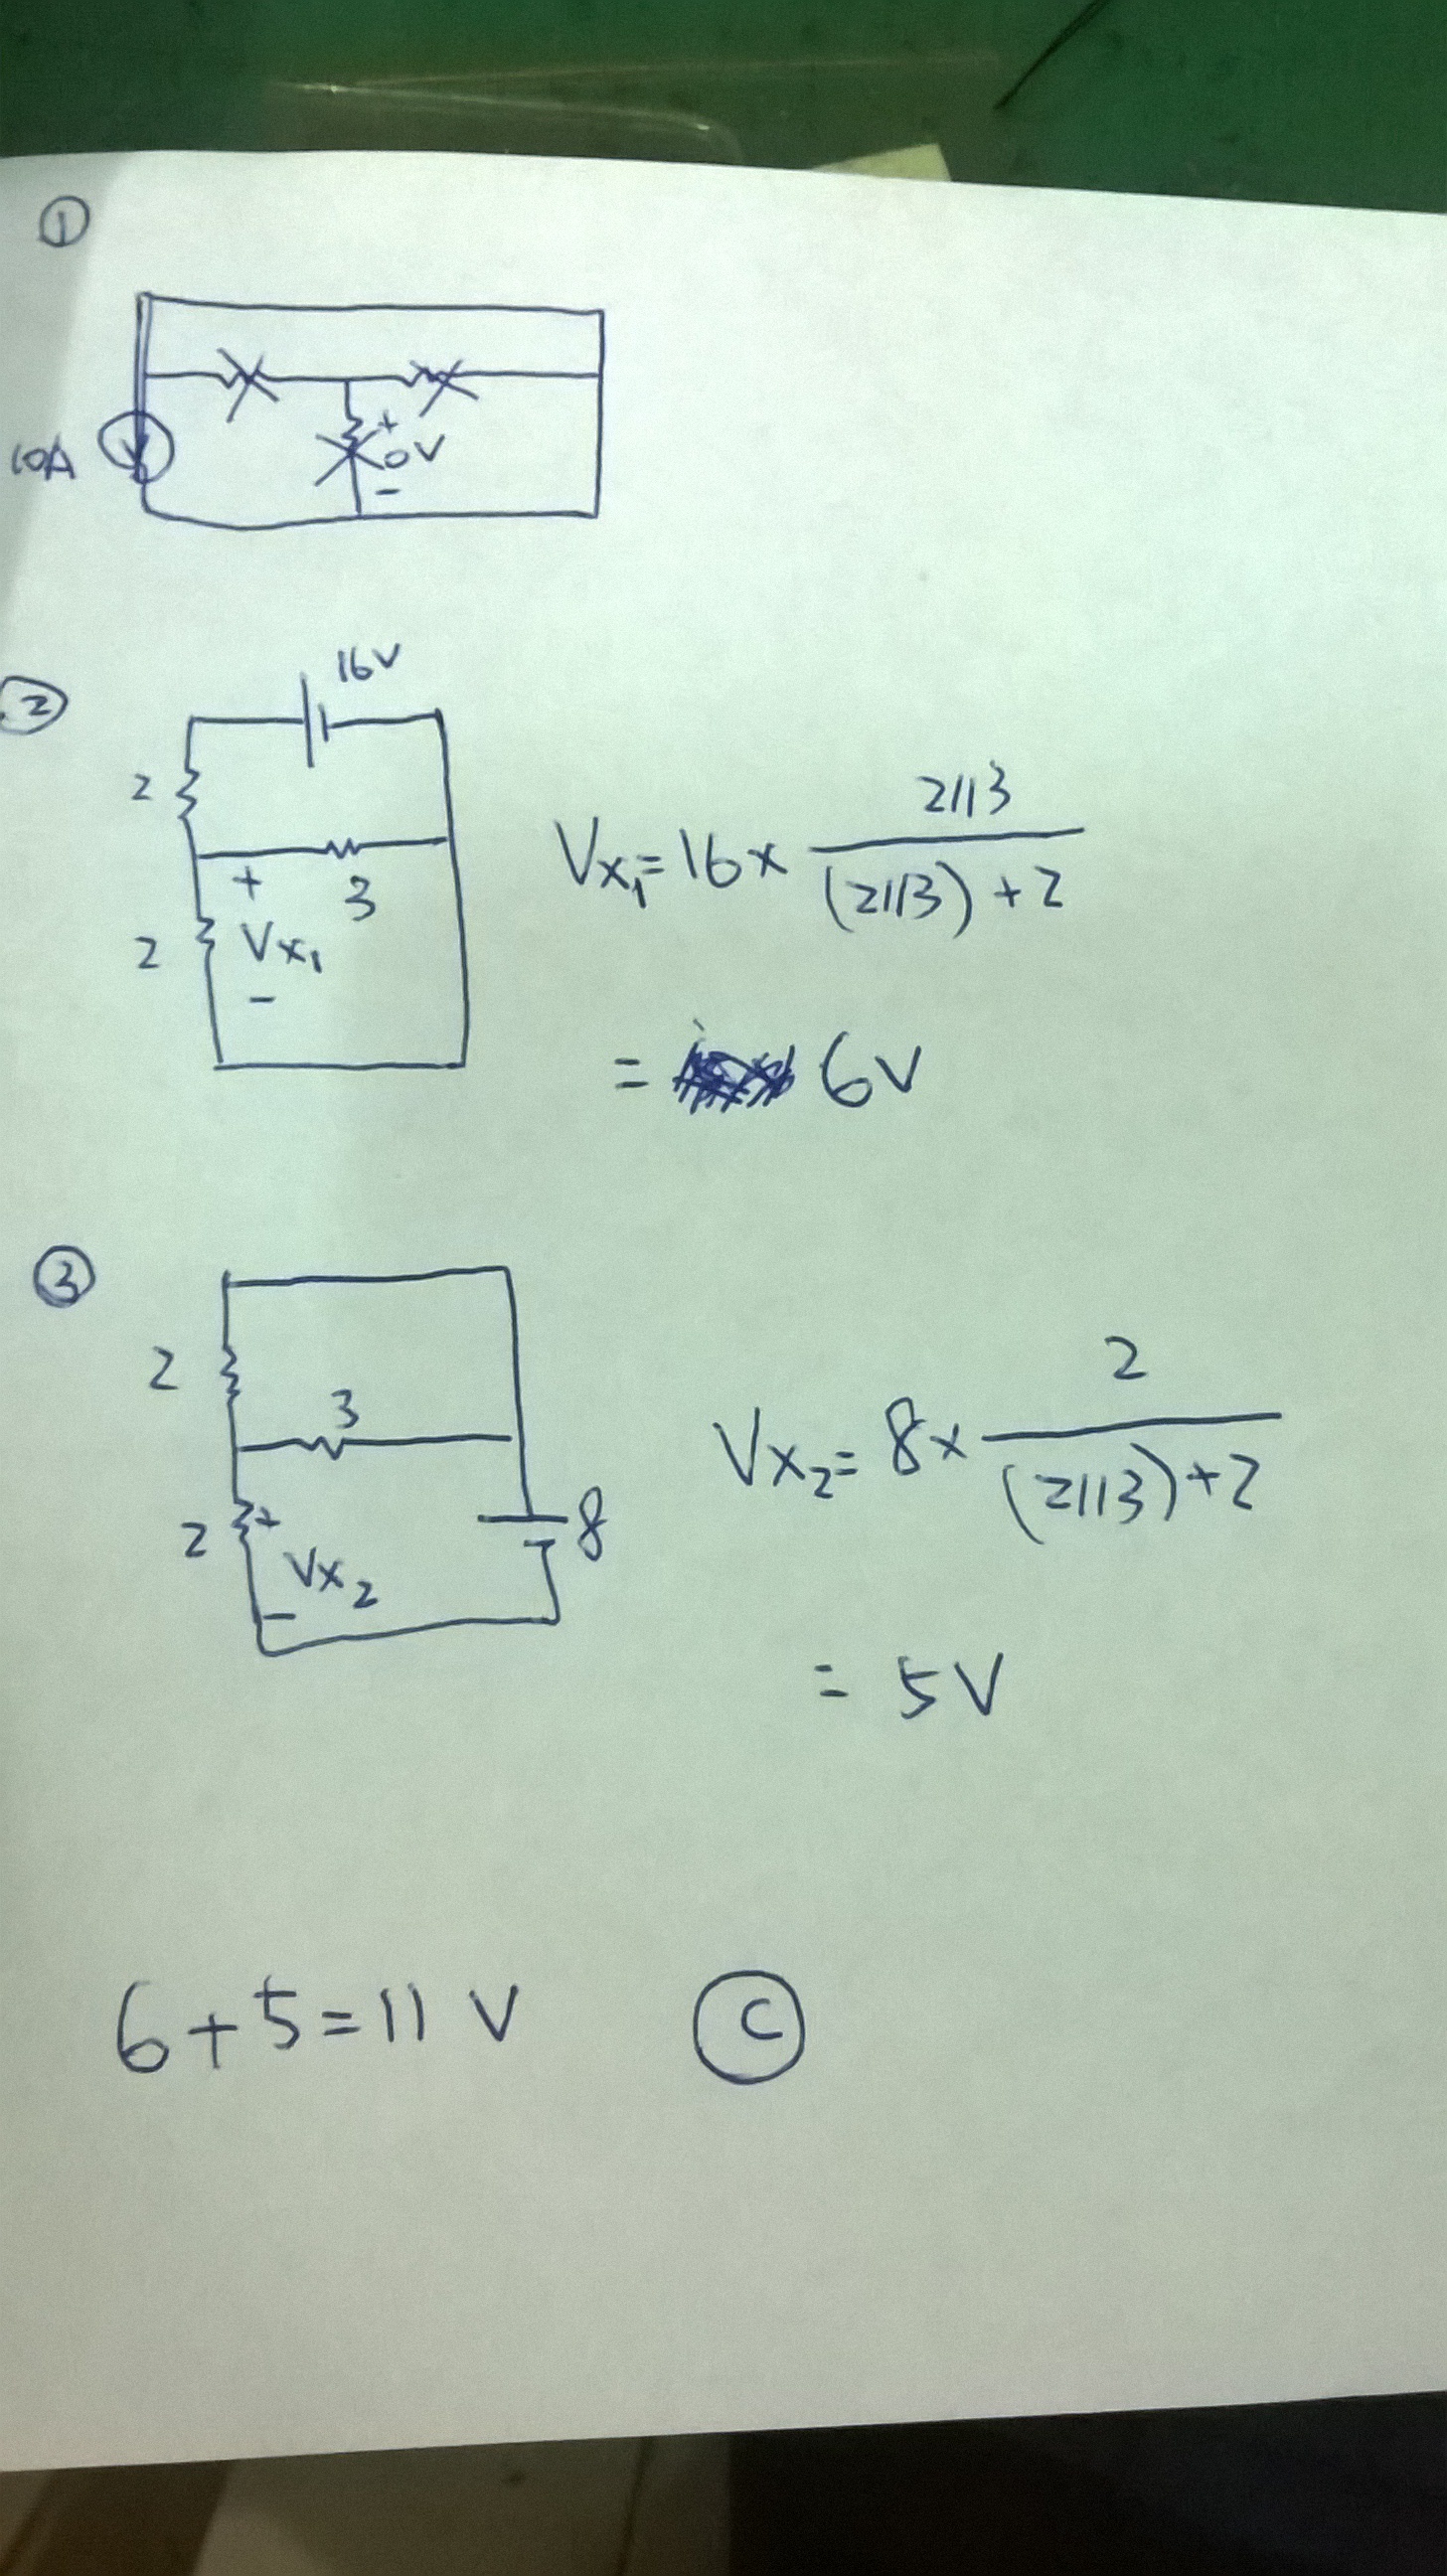 ①
10A
+
0V
-
②
16V
2
+
3
2
Vx₁
-
Vx₁=16×(2//3)/((2//3)+2)
= 6V
③
2
3
2
+
8
Vx₂
-
Vx₂=8×2/((2//3)+2)
= 5V
6+5=11 V
Ⓒ